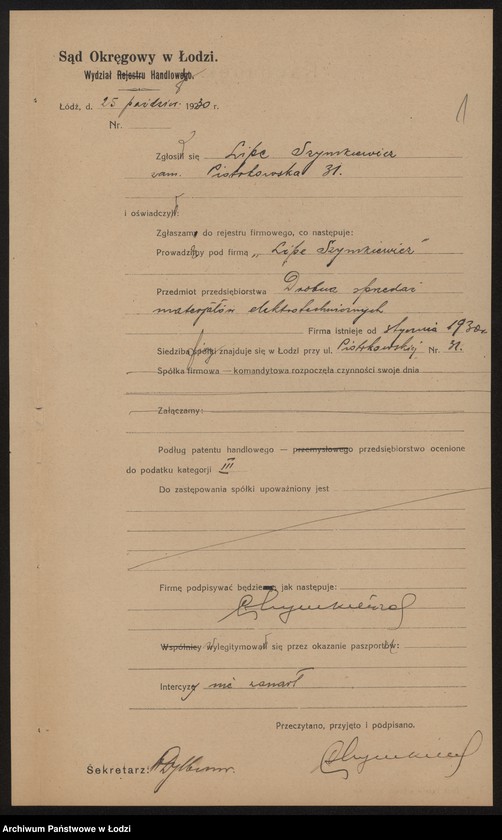 Sąd Okręgowy w Łodzi.
Wydział Rejestru Handlowego.
Łódź, d. 25 październ. 1930 r.
1
Nr.
Zgłosił się Lipe Szymkiewicz
zam. Piotrkowska 31.
i oświadczył:
Zgłaszam do rejestru firmowego, co następuje:
Prowadzę pod firmą „Lipe Szymkiewicz"
Przedmiot przedsiębiorstwa Drobna sprzedaż
materjałów elektrotechnicznych
Firma istnieje od stycznia 1930 r.
Siedziba firmy znajduje się w Łodzi przy ul. Piotrkowskiej Nr. 31.
Spółka firmowa — komandytowa rozpoczęła czynności swoje dnia
Załączamy:
Podług patentu handlowego — przemysłowego przedsiębiorstwo ocenione
do podatku kategorji III
Do zastępowania spółki upoważniony jest
Firmę podpisywać będzie jak następuje:
Szymkiewicz
Wspólnicy wylegitymował się przez okazanie paszportu:
Intercyzy nie zawarł
Przeczytano, przyjęto i podpisano.
Sekretarz:
Szymkiewicz
Archiwum Państwowe w Łodzi